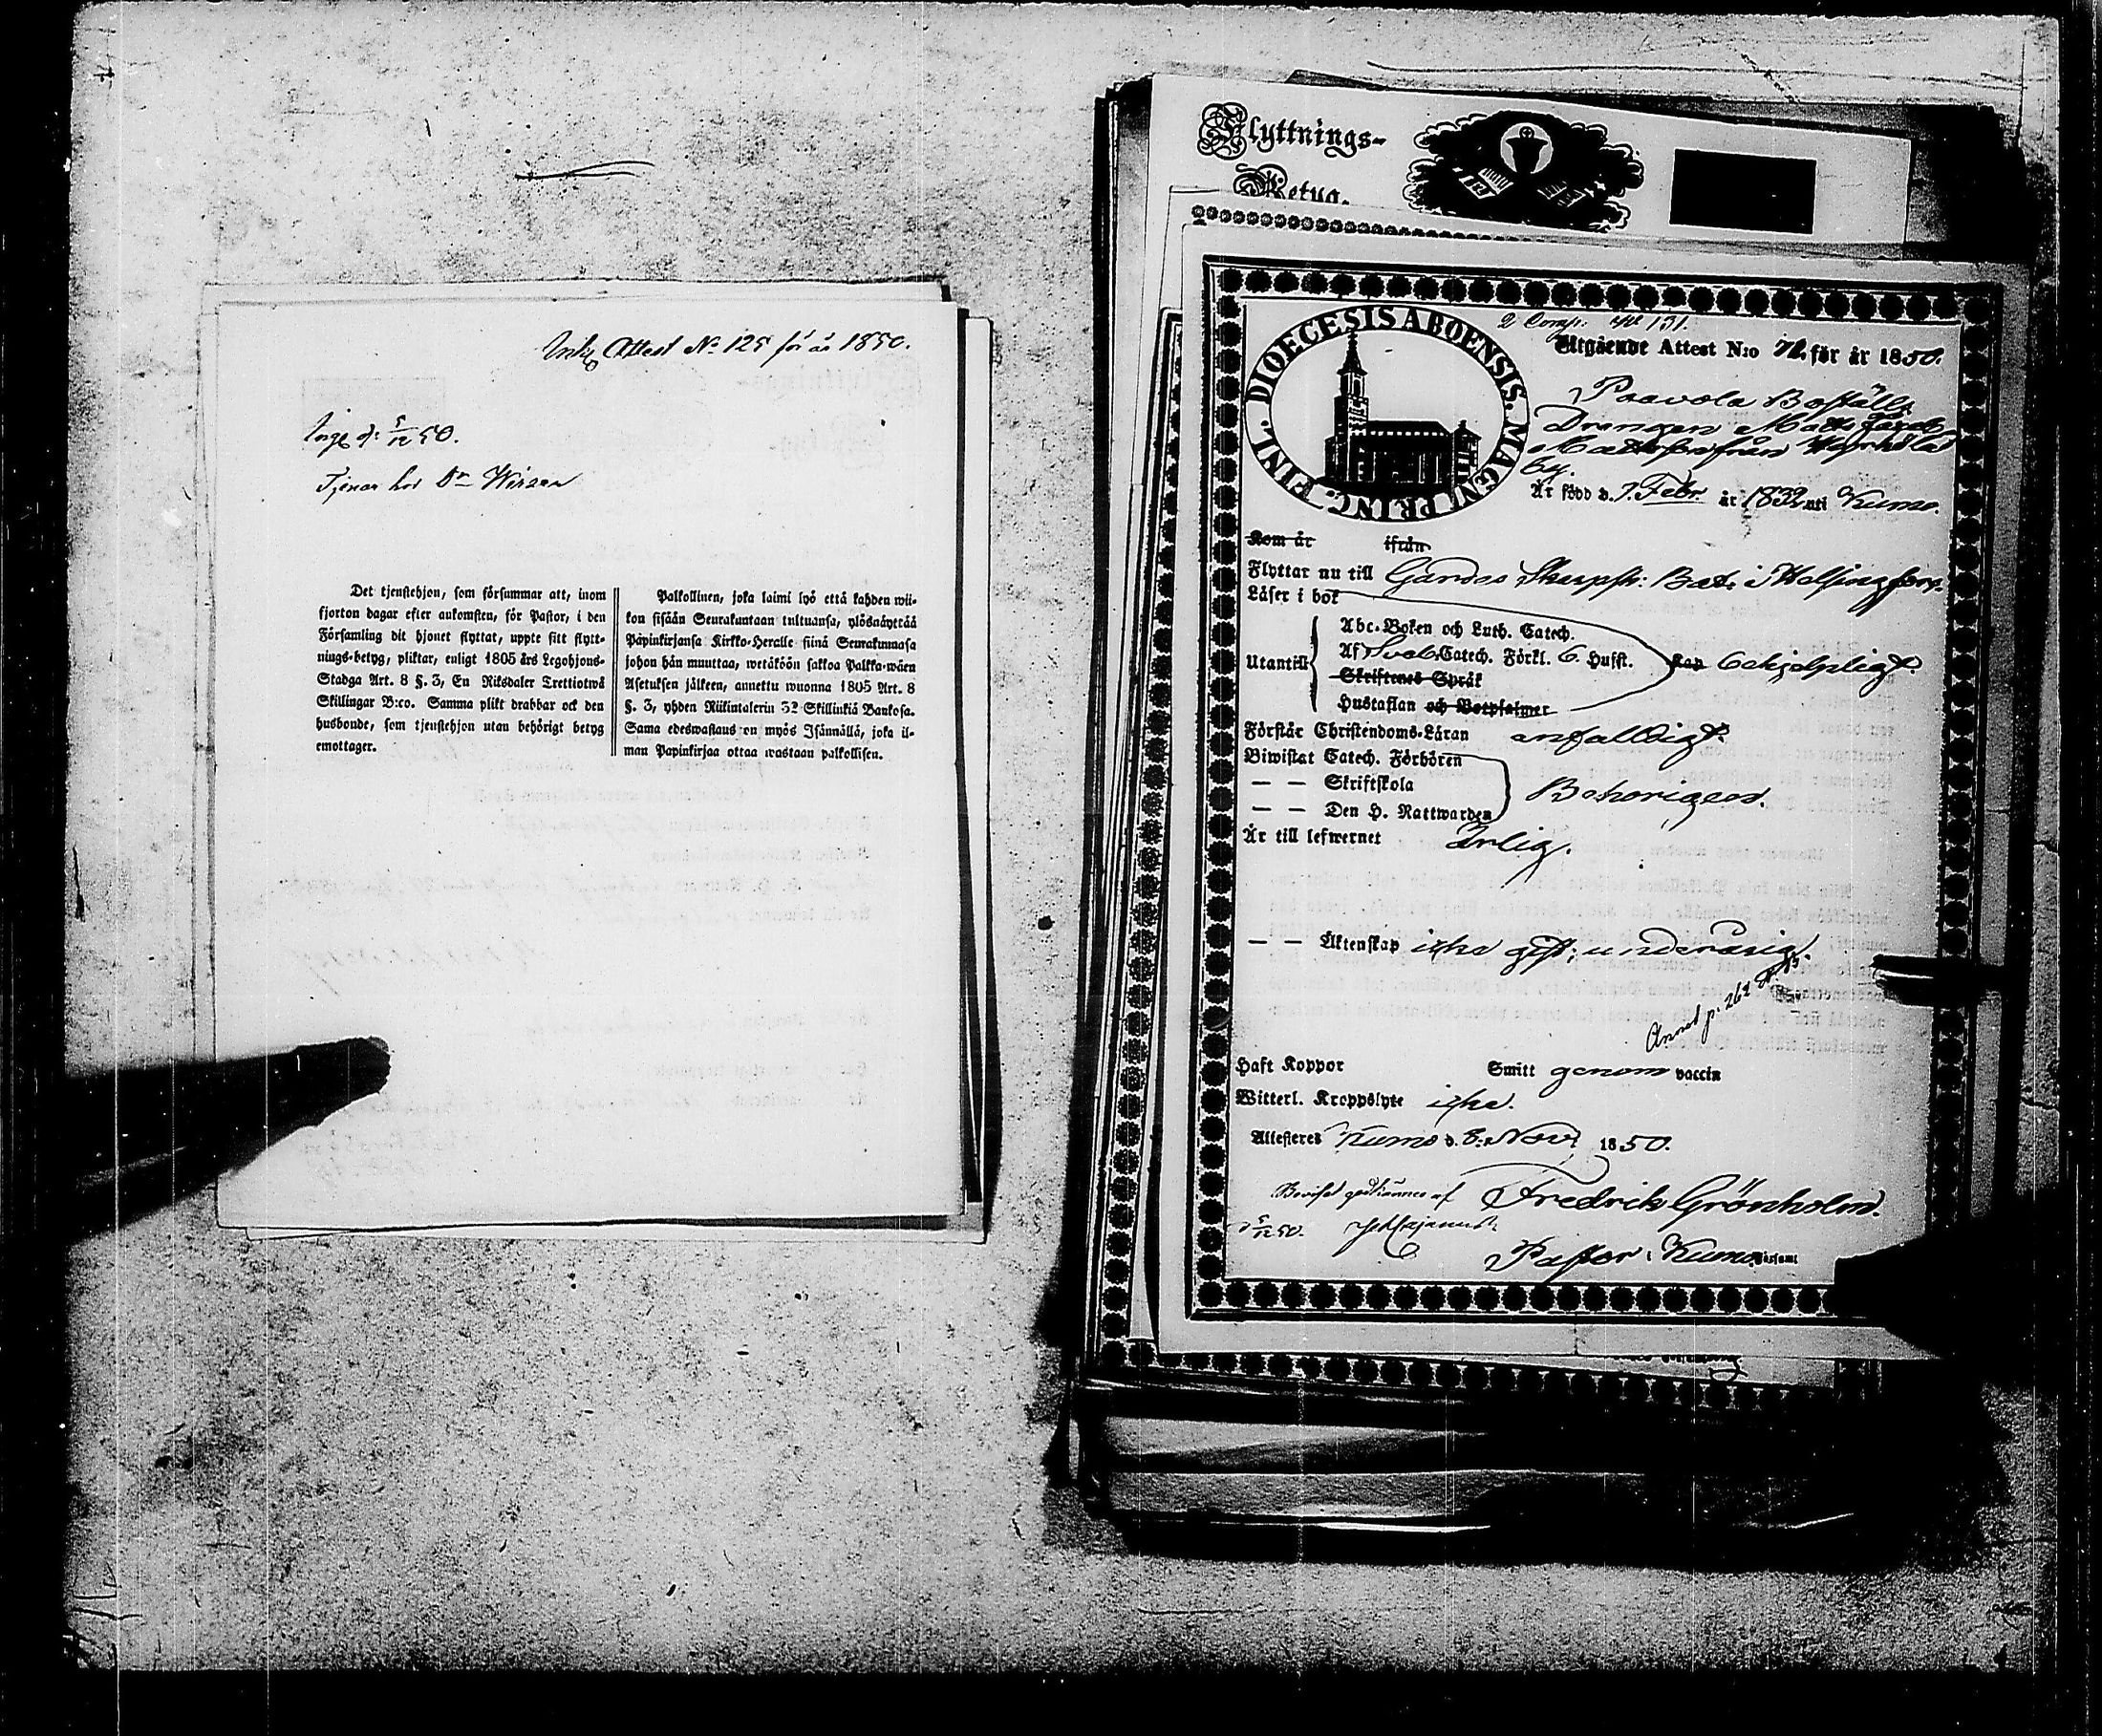 Attest No 125 för år 1850.
d: 5/12 50.
Tjenar hos
Det tjenstehjon, som försummar att, inom
fjorton dagar efter ankomsten, för Pastor, i den
Församling dit hjonet flyttat, uppte sitt flytt-
nings-betyg, pliktar, enligt 1805 års Legohjons-
Stadga Art. 8 §. 3, En Riksdaler Trettiotwå
Skillingar B:co. Samma plikt drabbar ock den
husbonde, som tjenstehjon utan behörigt betyg
emottager.
Palkollinen, joka laimi lyö että kahden wii-
kon sisään Seurakuntaan tultuansa, ylösnäyttää
Papinkirjansa Kirkko-Heralle siinä Seurakunnasa
johon hän muuttaa, wetäköön sakkoa Palkka-wäen
Asetuksen jälkeen, annettu wuonna 1805 Art. 8
§. 3, yhden Riikintalerin 32 Skillinkiä Bankosa.
Sama edeswastaus on myös Isännällä, joka il-
man Papinkirjaa ottaa wastaan palkollisen.
Flyttnings-
Betyg.
FINL. DIOECESIS ABOENSIS. MAGNI PRINC.
2 Comp: No 131.
Utgående Attest N:o 72. för år 1850.
Paavola Boställe
Drengen Matts
från
by.
Är född d. 7. Febr. år 1832 uti Kumo.
Kom år ifrån
Flyttar nu till Gardes Skarpsk: Bat: i Helsingfors.
Läser i bok
Utantill
Abc-Boken och Luth. Catech.
Af Sveb. Catech. Förkl. 6. Hufst.
Skriftenes Språk
Hustaflan och Botpsalmer
Kap behjelpligt.
Förstår Christendoms-Läran enfalldigt.
Biwistat Catech. Förhören
— — Skriftskola
— — Den H. Nattwarden
Behörigen.
Är till lefwernet ärlig.
— — Äktenskap icke gift; underårig.
p. 262
Haft Koppor Smitt genom vaccin
Witterl. Kroppslyte icke.
Attesteres Kumo d. 8. Nov. 1850.
Beviset godkännes af Fredrik Grönholm.
d 5/12 50.
Pastor i Kumo Församl